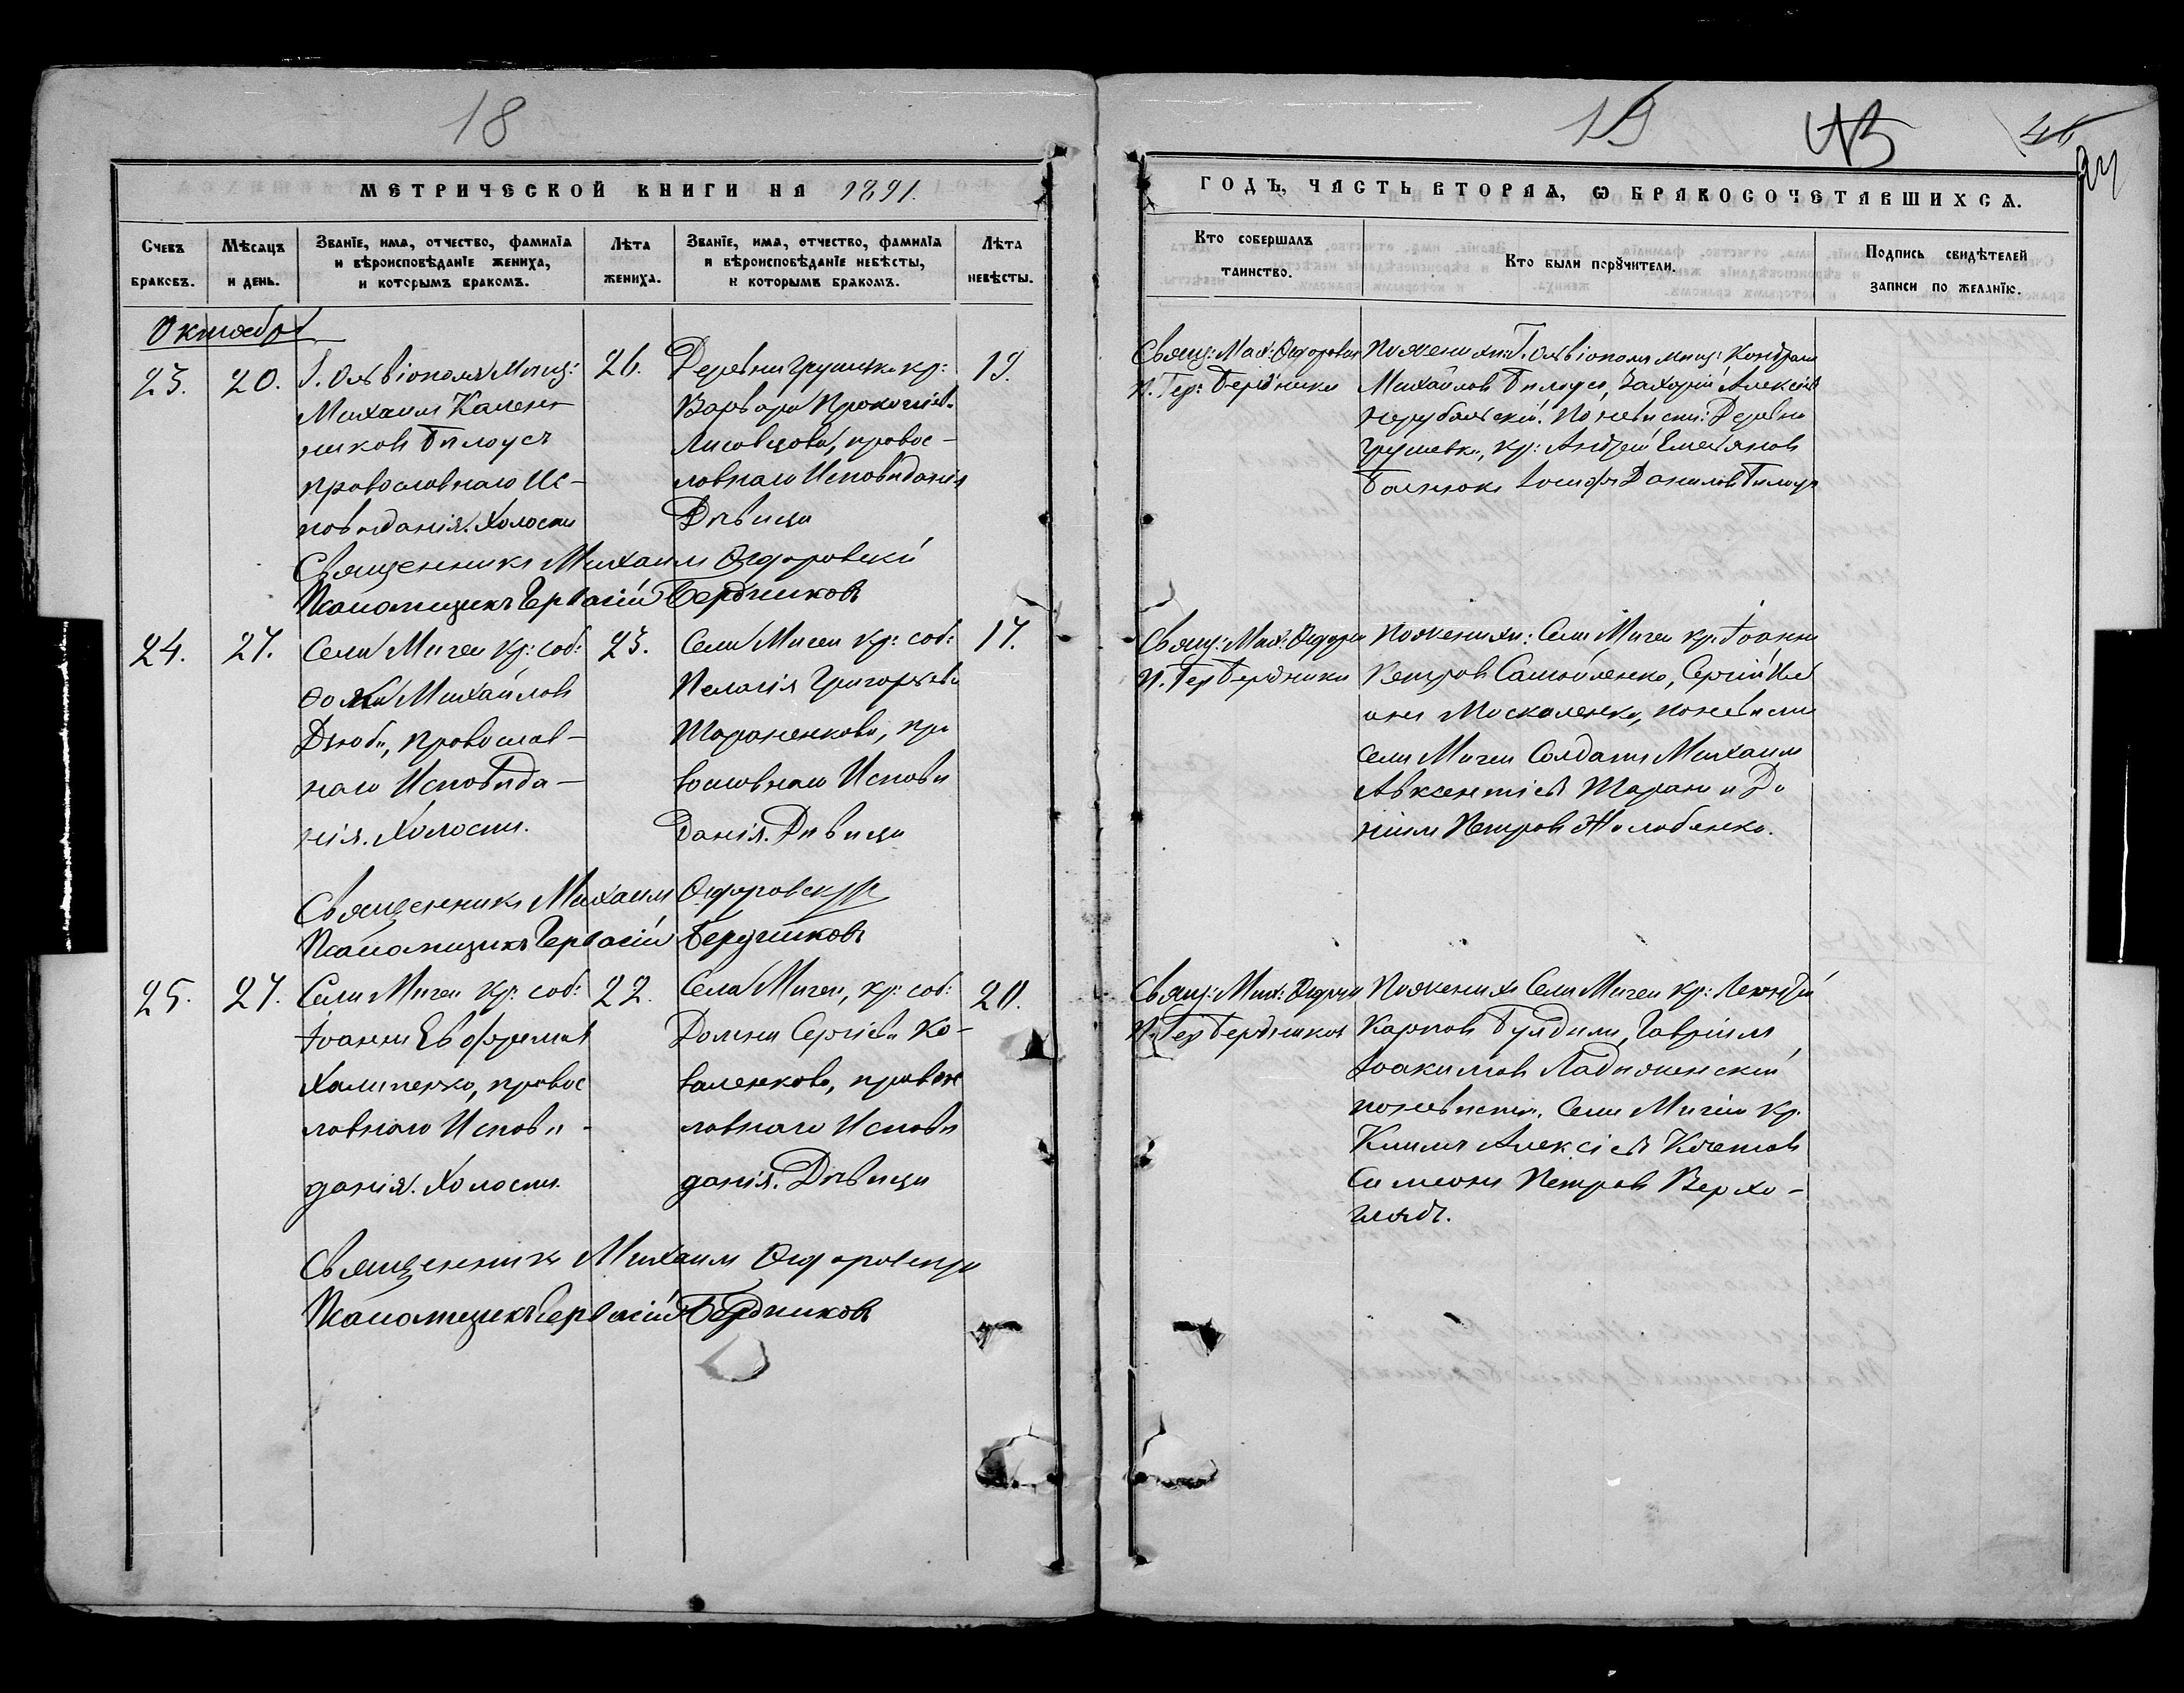 18
МЕТРИЧЕСКОЙ КНИГИ НА 1891.
Счевъ браковъ.
Мѣсяцъ и день.
Званїе, имѧ, отчество, фамилїѧ и вѣроисповѣданїе жениха, и которымъ бракомъ.
Лѣта жениха.
Званїе, имѧ, отчество, фамилїѧ и вѣроисповѣданїе невѣсты, и которымъ бракомъ.
Лѣта невѣсты.
Октябрь
23. 20.
Г. Ольвіополя Мѣщ:
Михаилъ Калин-
никовъ Билоусъ
православнаго Ис-
повѣданія. Холостъ
26.
Деревни Грушевки кр:
Варвара Прокопіев.
Лисовцова, правос-
лавнаго Исповѣданія
Дѣвица
19.
Священникъ Михаилъ Ѳедоровскій
Псаломщикъ Гервасій Бердниковъ
24. 27.
Села Мигеи кр: соб:
Ѳома Михайловъ
Дзюба, православ-
наго Исповѣда-
нія. Холостъ.
23.
Села Мигеи кр: соб:
Пелагія Григорьева
Тараненкова, пра
вославнаго Исповѣ
данія. Дѣвица
17.
Священникъ Михаилъ Ѳедоровскій
Псаломщикъ Гервасій Бердниковъ
25. 27.
Села Мигеи кр: соб:
Іоаннъ Евфреміевъ
Халипенко, правос
лавнаго Исповѣ-
данія. Холостъ.
22.
Села Мигеи, кр: соб:
Домна Сергіева Ко-
валенкова, правос
лавнаго Исповѣ
данія. Дѣвица
20.
Священникъ Михаилъ Ѳедоровскій
Псаломщикъ Гервасій Бердниковъ
19
ГОДЪ, ЧАСТЬ ВТОРАѦ, Ѡ БРАКОСОЧЕТАВШИХСѦ.
Кто совершалъ таинство.
Кто были порꙋчители.
Подпись свидѣтелей записи по желанїю.
Свящ: Мих: Ѳедоровскій
П. Гер: Бердниковъ
По женихѣ: Г. Ольвіополя мѣщ: Кондратъ
Михайловъ Билоусъ, Захарій Алексіевъ
Нерубальскій. По невѣстѣ: Деревни
Грушевки, кр: Андрей Емельяновъ
Іосифъ Даниловъ Билоусъ
Свящ: Мих: Ѳедоров
П. Гер Бердниковъ
По женихѣ: Села Мигеи кр: Іоаннъ
Петровъ Самойленко, Сергій
Москаленко, по невѣстѣ
Села Мигеи Солдатъ Михаилъ
Авксентіевъ Таранъ и Да
ніилъ Петровъ Жолобенко.
Свящ: Мих: Ѳедоров
П. Гер Бердниковъ
По женихѣ Села Мигеи кр:
Карповъ Гавріилъ
Іоакимовъ Ладыженскій
по невѣстѣ. Села Мигеи кр.
Климъ Алексіевъ Кочетовъ
Симеонъ Петровъ Верхо-
глядъ.